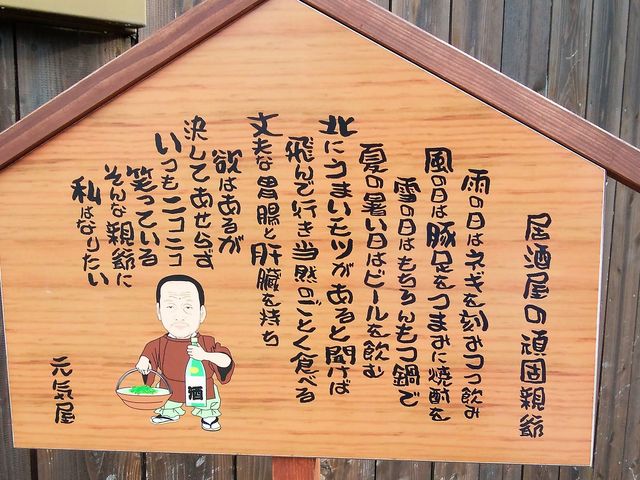 居酒屋の頑固親爺
雨の日はネギを刻みつつ飲み
風の日は豚足をつまみに焼酎を
雪の日はもちろんもつ鍋で
夏の暑い日はビールを飲む
北にうまいモツがあると聞けば
飛んで行き当然のごとく食べる
丈夫な胃腸と肝臓を持ち
欲はあるが
決してあせらず
いつもニコニコ
笑っている
そんな親爺に
私はなりたい
元気屋
酒